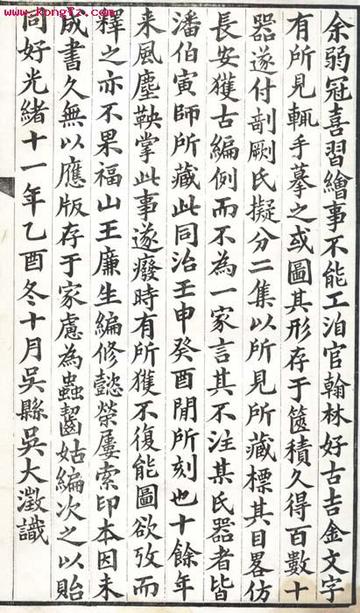 www.kongfz.com
余弱冠喜習繪事不能工洎官翰林好古吉金文字
有所見輒手摹之或圖其形存于篋積久得百數十
器遂付剞劂氏擬分二集以所見所藏標其目畧仿
長安獲古編例而不為一家言其不注某氏器者皆
潘伯寅師所藏此同治壬申癸酉閒所刻也十餘年
来風塵鞅掌此事遂癈時有所獲不復能圖欲攷而
釋之亦不果福山王廉生編修懿榮屢索印本因未
成書久無以應版存于家慮為蟲齧姑編次之以貽
同好光緒十一年乙酉冬十月吳縣吳大澂識